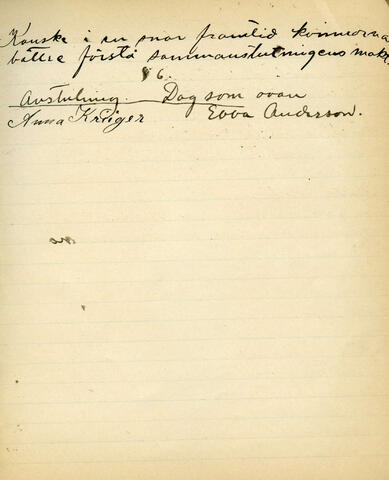 Kanske i en snar framtid kvinnorna
bättre förstå sammanslutningens makt
§ 6.
Avslutning. Dag som ovan
Anna Krüger Ebba Anderson.